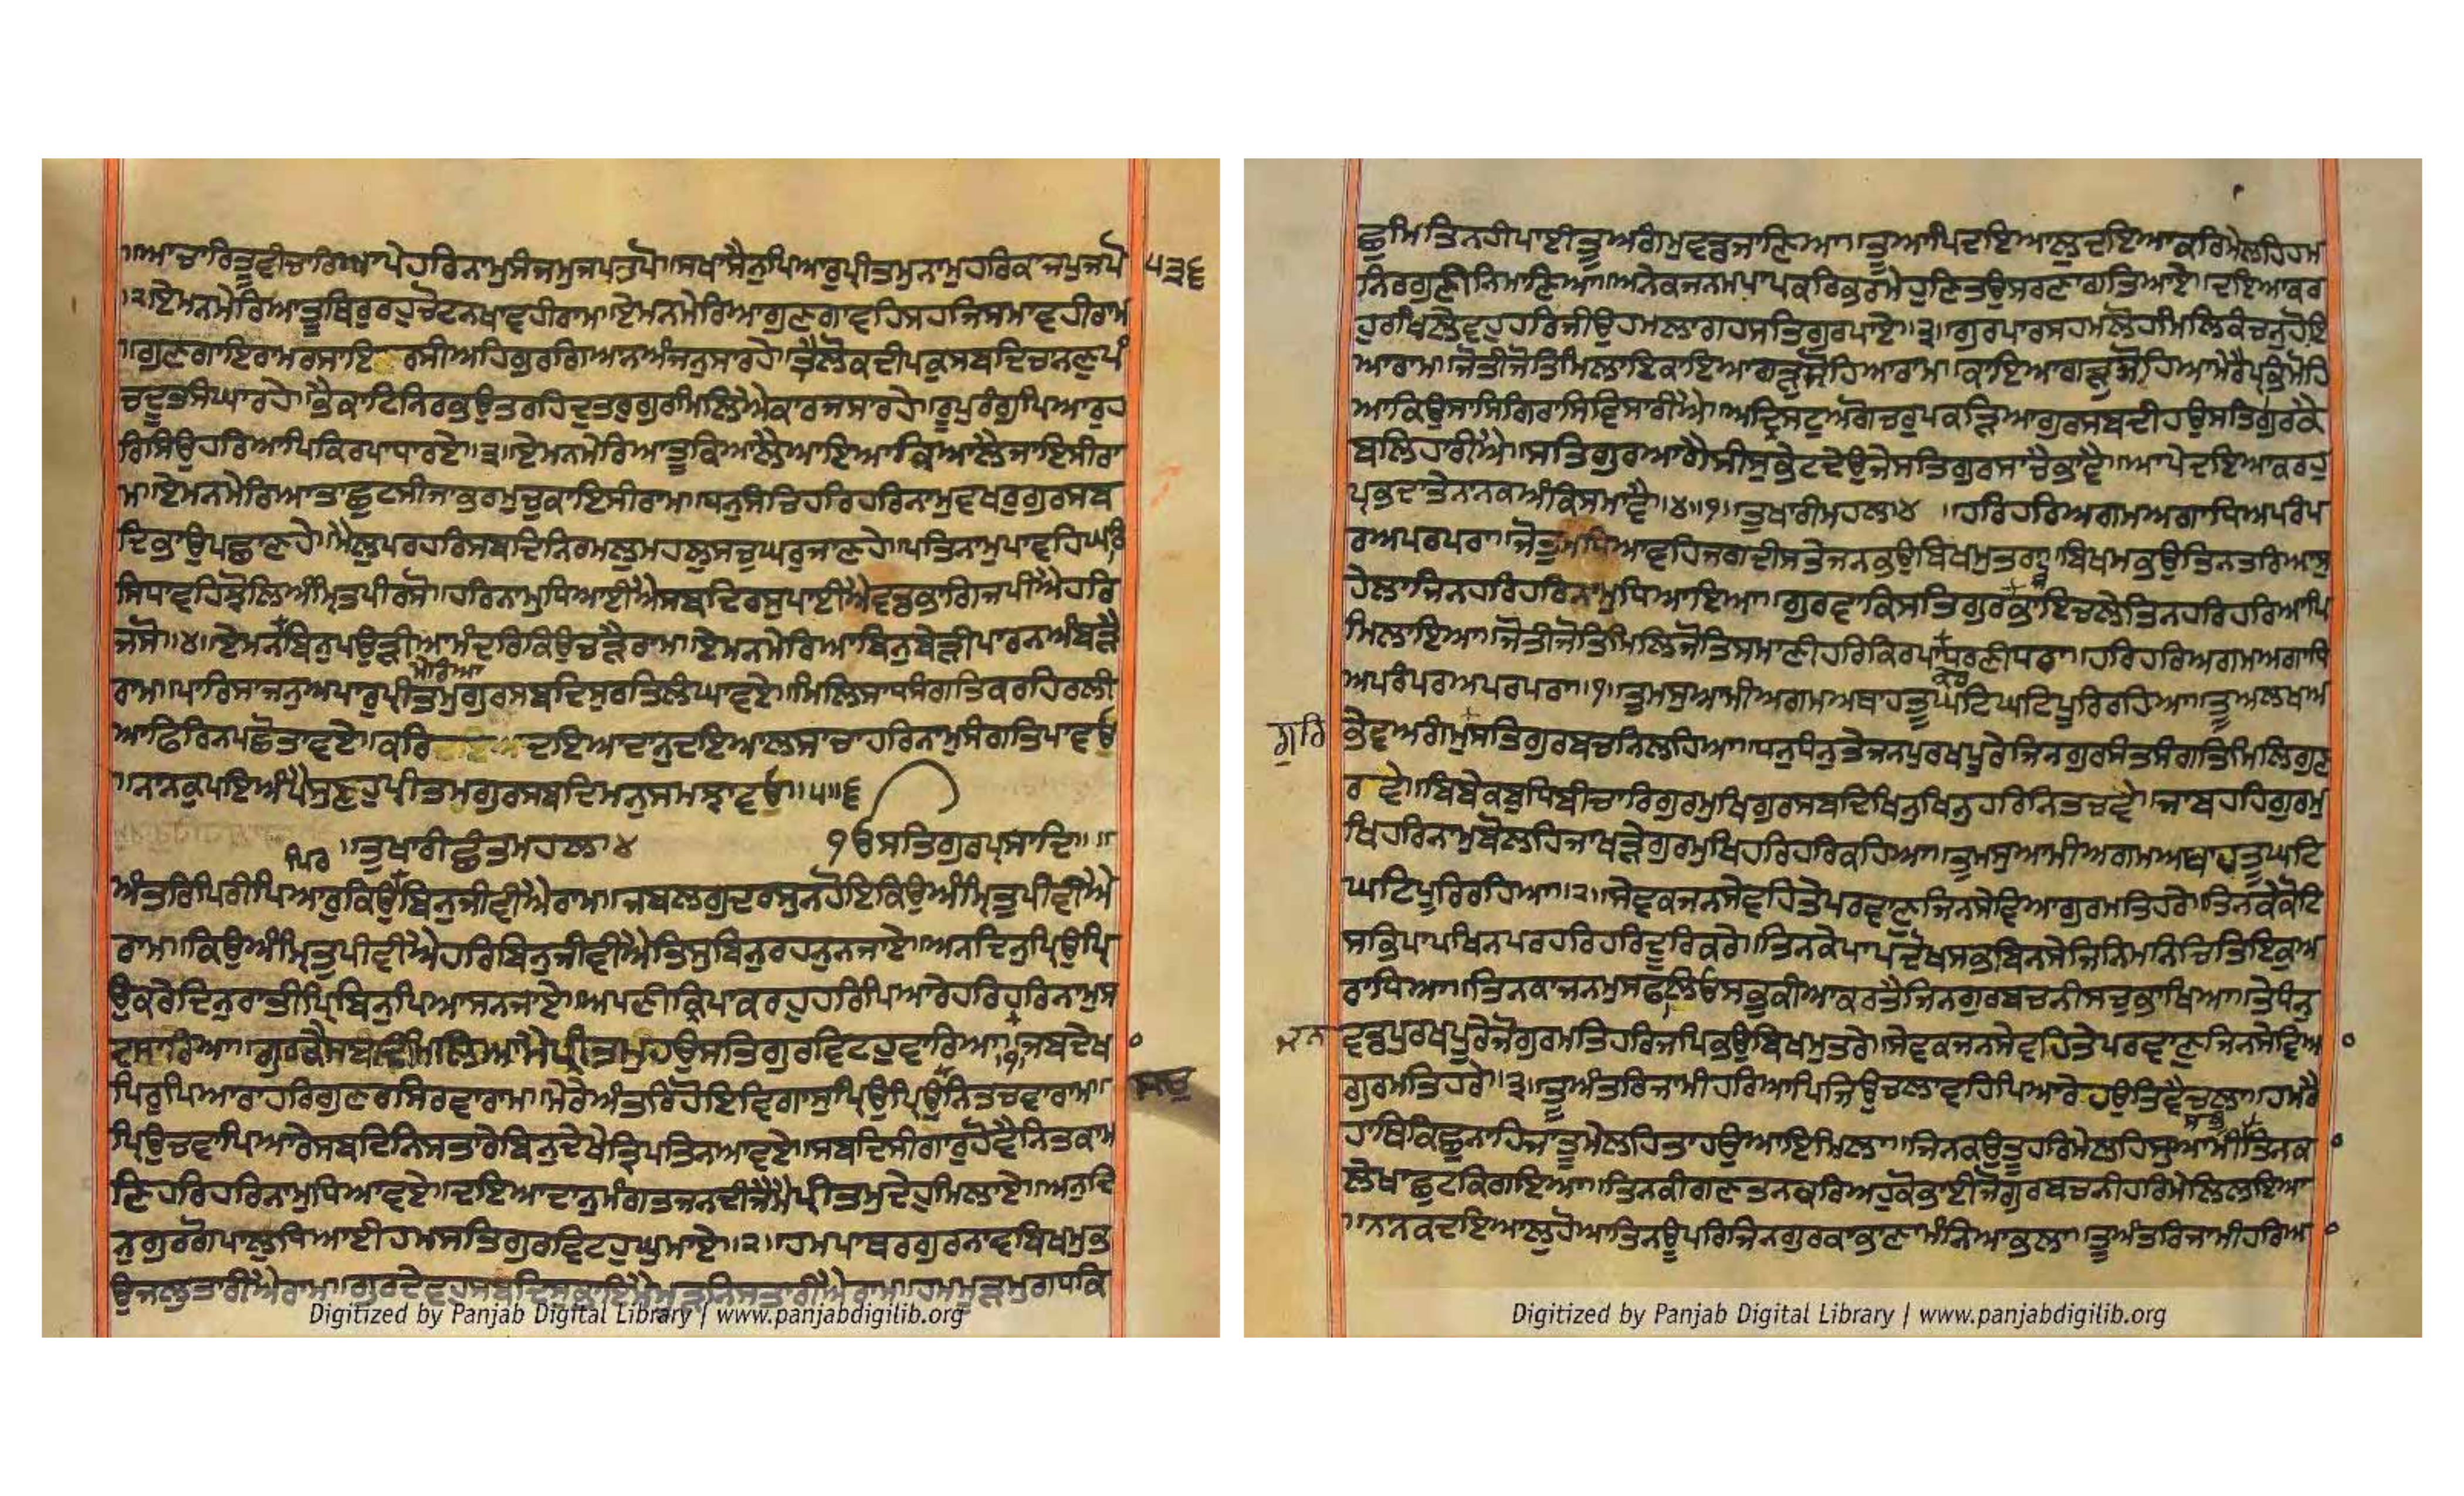 ॥ਆਚਾਰਿ ਤੂ ਵੀਚਾਰਿ ਆਪੇ ਹਰਿ ਨਾਮੁ ਸੰਜਮੁ ਜਪ ਤਪੋ ॥ ਸਖਾ ਸੈਨੁ ਪਿਆਰੁ ਪ੍ਰੀਤਮੁ ਨਾਮੁ ਹਰਿ ਕਾ ਜਪੁ ਜਪੋ
੫੩੬
।੨। ਏ ਮਨ ਮੇਰਿਆ ਤੂ ਥਿਰੁ ਰਹੁ ਚੋਟ ਨ ਖਾਵਹੀ ਰਾਮ ॥ ਏ ਮਨ ਮੇਰਿਆ ਗੁਣ ਗਾਵਹਿ ਸਹਜਿ ਸਮਾਵਹੀ ਰਾਮ
॥ਗੁਣ ਗਾਇ ਰਾਮ ਰਸਾਇ ਰਸੀਅਹਿ ਗੁਰ ਗਿਆਨ ਅੰਜਨੁ ਸਾਰਹੇ ॥ ਤ੍ਰੈ ਲੋਕ ਦੀਪਕੁ ਸਬਦਿ ਚਾਨਣੁ ਪੰ
ਚ ਦੂਤ ਸੰਘਾਰਹੇ ॥ ਭੈ ਕਾਟਿ ਨਿਰਭਉ ਤਰਹਿ ਦੁਤਰੁ ਗੁਰਿ ਮਿਲਿਐ ਕਾਰਜ ਸਾਰਹੇ ॥ ਰੂਪੁ ਰੰਗੁ ਪਿਆਰੁ ਹ
ਰਿ ਸਿਉ ਹਰਿ ਆਪਿ ਕਿਰਪਾ ਧਾਰਏ ॥੩। ਏ ਮਨ ਮੇਰਿਆ ਤੂ ਕਿਆ ਲੈ ਆਇਆ ਕਿਆ ਲੈ ਜਾਇਸੀ ਰਾ
ਮ ॥ ਏ ਮਨ ਮੇਰਿਆ ਤਾ ਛੁਟਸੀ ਜਾ ਭਰਮੁ ਚੁਕਾਇਸੀ ਰਾਮ ॥ ਧਨੁ ਸੰਚਿ ਹਰਿ ਹਰਿ ਨਾਮੁ ਵਖਰੁ ਗੁਰ ਸਬ
ਦਿ ਭਾਉ ਪਛਾਣਹੇ ॥ ਮੈਲੁ ਪਰਹਰਿ ਸਬਦਿ ਨਿਰਮਲੁ ਮਹਲੁ ਸਚੁ ਘਰੁ ਜਾਣਹੇ ॥ ਪਤਿ ਨਾਮੁ ਪਾਵਹਿ ਘਰਿ
ਸਿਧਾਵਹਿ ਝੋਲਿ ਅੰਮ੍ਰਿਤ ਪੀ ਰਸੋ ॥ ਹਰਿ ਨਾਮੁ ਧਿਆਈਐ ਸਬਦਿ ਰਸੁ ਪਾਈਐ ਵਡਭਾਗਿ ਜਪੀਐ ਹਰਿ
ਜਸੋ ॥੪। ਏ ਮਨ ਬਿਨੁ ਪਉੜੀਆ ਮੰਦਰਿ ਕਿਉ ਚੜੈ ਰਾਮ ॥ ਏ ਮਨ ਮੇਰਿਆ ਬਿਨੁ ਬੇੜੀ ਪਾਰਿ ਨ ਅੰਬੜੈ
ਮੇਰਿਆ
ਰਾਮ ॥ ਪਾਰਿ ਸਾਜਨੁ ਅਪਾਰੁ ਪ੍ਰੀਤਮੁ ਗੁਰ ਸਬਦਿ ਸੁਰਤਿ ਲੰਘਾਵਏ ॥ ਮਿਲਿ ਸਾਧਸੰਗਤਿ ਕਰਹਿ ਰਲੀ
ਆ ਫਿਰਿ ਨ ਪਛੋਤਾਵਏ ॥ ਕਰਿ ਦਇਆ ਦਾਨੁ ਦਇਆਲ ਸਾਚਾ ਹਰਿ ਨਾਮੁ ਸੰਗਤਿ ਪਾਵਉ
॥ਨਾਨਕੁ ਪਇਅੰਪੈ ਸੁਣਹੁ ਪ੍ਰੀਤਮ ਗੁਰ ਸਬਦਿ ਮਨੁ ਸਮਝਾਵਉ ॥੫॥੬
॥ਤੁਖਾਰੀ ਛੰਤ ਮਹਲਾ ੪ ੴ ਸਤਿਗੁਰ ਪ੍ਰਸਾਦਿ ॥
ਪਿਰ
ਅੰਤਰਿ ਪਿਰੀ ਪਿਆਰੁ ਕਿਉ ਬਿਨੁ ਜੀਵੀਐ ਰਾਮ ॥ ਜਬ ਲਗੁ ਦਰਸੁ ਨ ਹੋਇ ਕਿਉ ਅੰਮ੍ਰਿਤੁ ਪੀਵੀਐ
ਰਾਮ ॥ ਕਿਉ ਅੰਮ੍ਰਿਤੁ ਪੀਵੀਐ ਹਰਿ ਬਿਨੁ ਜੀਵੀਐ ਤਿਸੁ ਬਿਨੁ ਰਹਨੁ ਨ ਜਾਏ ॥ ਅਨਦਿਨੁ ਪ੍ਰਿਉ ਪ੍ਰਿ
ਉ ਕਰੇ ਦਿਨੁ ਰਾਤੀ ਪਿਰ ਬਿਨੁ ਪਿਆਸ ਨ ਜਾਏ ॥ ਅਪਣੀ ਕ੍ਰਿਪਾ ਕਰਹੁ ਹਰਿ ਪਿਆਰੇ ਹਰਿ ਹਰਿ ਨਾਮੁ ਸ
ਦ ਸਾਰਿਆ ॥ ਗੁਰ ਕੈ ਸਬਦਿ ਮਿਲਿਆ ਮੈ ਪ੍ਰੀਤਮੁ ਹਉ ਸਤਿਗੁਰ ਵਿਟਹੁ ਵਾਰਿਆ ।੧। ਜਬ ਦੇਖ
ਪਿਰੁ ਪਿਆਰਾ ਹਰਿ ਗੁਣ ਰਸਿ ਰਵਾ ਰਾਮ ॥ ਮੇਰੈ ਅੰਤਰਿ ਹੋਇ ਵਿਗਾਸੁ ਪ੍ਰਿਉ ਪ੍ਰਿਉ ਨਿਤ ਚਵਾ ਰਾਮ ॥
ਪ੍ਰਿਉ ਚਵਾ ਪਿਆਰੇ ਸਬਦਿ ਨਿਸਤਾਰੇ ਬਿਨੁ ਦੇਖੇ ਤ੍ਰਿਪਤਿ ਨ ਆਵਏ ॥ ਸਬਦਿ ਸੀਗਾਰੁ ਹੋਵੈ ਨਿਤ ਕਾਮ
ਣਿ ਹਰਿ ਹਰਿ ਨਾਮੁ ਧਿਆਵਏ ॥ ਦਇਆ ਦਾਨੁ ਮੰਗਤ ਜਨ ਦੀਜੈ ਮੈ ਪ੍ਰੀਤਮੁ ਦੇਹੁ ਮਿਲਾਏ ॥ ਅਨਦਿ
ਨੁ ਗੁਰੁ ਗੋਪਾਲੁ ਧਿਆਈ ਹਮ ਸਤਿਗੁਰ ਵਿਟਹੁ ਘੁਮਾਏ ॥੨। ਹਮ ਪਾਥਰ ਗੁਰੁ ਨਾਵ ਬਿਖਮੁ ਭ
ਉਜਲੁ ਤਾਰੀਐ ਰਾਮ ॥ ਗੁਰ ਦੇਵਹੁ ਸਬਦਿ ਸੁਭਾਇ ਮੈ ਮੂੜ ਨਿਸਤਾਰੀਐ ਰਾਮ ॥ ਹਮ ਮੂੜ ਮੁਗਧ ਕਿ
Digitized by Panjab Digital Library | www.panjabdigilib.org
ਛੁ ਮਿਤਿ ਨਹੀ ਪਾਈ ਤੂ ਅਗੰਮੁ ਵਡ ਜਾਣਿਆ ॥ ਤੂ ਆਪਿ ਦਇਆਲੁ ਦਇਆ ਕਰਿ ਮੇਲਹਿ ਹਮ
ਨਿਰਗੁਣੀ ਨਿਮਾਣਿਆ ॥ ਅਨੇਕ ਜਨਮ ਪਾਪ ਕਰਿ ਭਰਮੇ ਹੁਣਿ ਤਉ ਸਰਣਾਗਤਿ ਆਏ ॥ ਦਇਆ ਕਰ
ਹੁ ਰਖਿ ਲੇਵਹੁ ਹਰਿ ਜੀਉ ਹਮ ਲਾਗਹ ਸਤਿਗੁਰ ਪਾਏ ॥੩। ਗੁਰ ਪਾਰਸ ਹਮ ਲੋਹ ਮਿਲਿ ਕੰਚਨੁ ਹੋਇ
ਆ ਰਾਮ ॥ ਜੋਤੀ ਜੋਤਿ ਮਿਲਾਇ ਕਾਇਆ ਗੜੁ ਸੋਹਿਆ ਰਾਮ ॥ ਕਾਇਆ ਗੜੁ ਸੋਹਿਆ ਮੇਰੈ ਪ੍ਰਭਿ ਮੋਹਿ
ਆ ਕਿਉ ਸਾਸਿ ਗਿਰਾਸਿ ਵਿਸਾਰੀਐ ॥ ਅਦ੍ਰਿਸਟੁ ਅਗੋਚਰੁ ਪਕੜਿਆ ਗੁਰ ਸਬਦੀ ਹਉ ਸਤਿਗੁਰ ਕੈ
ਬਲਿਹਾਰੀਐ ॥ ਸਤਿਗੁਰ ਆਗੈ ਸੀਸੁ ਭੇਟ ਦੇਉ ਜੇ ਸਤਿਗੁਰ ਸਾਚੇ ਭਾਵੈ ॥ ਆਪੇ ਦਇਆ ਕਰਹੁ
ਪ੍ਰਭ ਦਾਤੇ ਨਾਨਕ ਅੰਕਿ ਸਮਾਵੈ ॥੪॥੧। ਤੁਖਾਰੀ ਮਹਲਾ ੪ ॥ ਹਰਿ ਹਰਿ ਅਗਮ ਅਗਾਧਿ ਅਪਰੰਪ
ਰ ਅਪਰਪਰਾ ॥ ਜੋ ਤੁਮ ਧਿਆਵਹਿ ਜਗਦੀਸ ਤੇ ਜਨ ਭਉ ਬਿਖਮੁ ਤਰਾ ॥ ਬਿਖਮ ਭਉ ਤਿਨ ਤਰਿਆ ਸੁ
ਹੇਲਾ ਜਿਨ ਹਰਿ ਹਰਿ ਨਾਮੁ ਧਿਆਇਆ ॥ ਗੁਰ ਵਾਕਿ ਸਤਿਗੁਰ ਭਾਇ ਚਲੇ ਤਿਨ ਹਰਿ ਹਰਿ ਆਪਿ
ਮਿਲਾਇਆ ॥ ਜੋਤੀ ਜੋਤਿ ਮਿਲਿ ਜੋਤਿ ਸਮਾਣੀ ਹਰਿ ਕਿਰਪਾ ਧਰਣੀਧਰਾ ॥ ਹਰਿ ਹਰਿ ਅਗਮ ਅਗਾਧਿ
ਕਰਿ
ਅਪਰੰਪਰ ਅਪਰਪਰਾ ॥੧। ਤੁਮ ਸੁਆਮੀ ਅਗਮ ਅਥਾਹ ਤੂ ਘਟਿ ਘਟਿ ਪੂਰਿ ਰਹਿਆ ॥ ਤੂ ਅਲਖ ਅ
ਗੁਰਿ
ਭੇਵ ਅਗੰਮੁ ਸਤਿਗੁਰ ਬਚਨਿ ਲਹਿਆ ॥ ਧਨੁ ਧੰਨੁ ਤੇ ਜਨ ਪੁਰਖ ਪੂਰੇ ਜਿਨ ਗੁਰ ਸੰਤਸੰਗਤਿ ਮਿਲਿ ਗੁਣ
ਰਵੇ ॥ ਬਿਬੇਕ ਬੁਧਿ ਬੀਚਾਰਿ ਗੁਰਮੁਖਿ ਗੁਰ ਸਬਦਿ ਖਿਨੁ ਖਿਨੁ ਹਰਿ ਨਿਤ ਚਵੇ ॥ ਜਾ ਬਹਹਿ ਗੁਰਮੁ
ਖਿ ਹਰਿ ਨਾਮੁ ਬੋਲਹਿ ਜਾ ਖੜੇ ਗੁਰਮੁਖਿ ਹਰਿ ਹਰਿ ਕਹਿਆ ॥ ਤੁਮ ਸੁਆਮੀ ਅਗਮ ਅਥਾਹ ਤੂ ਘਟਿ
ਘਟਿ ਪੂਰਿ ਰਹਿਆ ॥੨। ਸੇਵਕ ਜਨ ਸੇਵਹਿ ਤੇ ਪਰਵਾਣੁ ਜਿਨ ਸੇਵਿਆ ਗੁਰਮਤਿ ਹਰੇ ॥ ਤਿਨ ਕੇ ਕੋਟਿ
ਸਭਿ ਪਾਪ ਖਿਨੁ ਪਰਹਰਿ ਹਰਿ ਦੂਰਿ ਕਰੇ ॥ ਤਿਨ ਕੇ ਪਾਪ ਦੋਖ ਸਭਿ ਬਿਨਸੇ ਜਿਨਿ ਮਨਿ ਚਿਤਿ ਇਕੁ ਅ
ਰਾਧਿਆ ॥ ਤਿਨ ਕਾ ਜਨਮੁ ਸਫਲਿਓ ਸਭੁ ਕੀਆ ਕਰਤੈ ਜਿਨ ਗੁਰ ਬਚਨੀ ਸਚੁ ਭਾਖਿਆ ॥ ਤੇ ਧੰਨੁ
ਜਨ
ਵਡ ਪੁਰਖ ਪੂਰੇ ਜੋ ਗੁਰਮਤਿ ਹਰਿ ਜਪਿ ਭਉ ਬਿਖਮੁ ਤਰੇ ॥ ਸੇਵਕ ਜਨ ਸੇਵਹਿ ਤੇ ਪਰਵਾਣੁ ਜਿਨ ਸੇਵਿਆ
ਗੁਰਮਤਿ ਹਰੇ ॥੩। ਤੂ ਅੰਤਰਜਾਮੀ ਹਰਿ ਆਪਿ ਜਿਉ ਚਲਾਵਹਿ ਪਿਆਰੇ ਹਉ ਤਿਵੈ ਚਲਾ ॥ ਹਮਰੈ
ਹਾਥਿ ਕਿਛੁ ਨਾਹਿ ਜਾ ਤੂ ਮੇਲਹਿ ਤਾ ਹਉ ਆਇ ਮਿਲਾ ॥ ਜਿਨ ਕਉ ਤੂ ਹਰਿ ਮੇਲਹਿ ਸੁਆਮੀ ਤਿਨ ਕਾ
ਲੇਖਾ ਛੁਟਕਿ ਗਇਆ ॥ ਤਿਨ ਕੀ ਗਣਤ ਨ ਕਰਿਅਹੁ ਕੋ ਭਾਈ ਜੋ ਗੁਰ ਬਚਨੀ ਹਰਿ ਮੇਲਿ ਲਇਆ
॥ਨਾਨਕ ਦਇਆਲੁ ਹੋਆ ਤਿਨ ਊਪਰਿ ਜਿਨ ਗੁਰ ਕਾ ਭਾਣਾ ਮੰਨਿਆ ਭਲਾ ॥ ਤੂ ਅੰਤਰਿਜਾਮੀ ਹਰਿ ਆ
Digitized by Panjab Digital Library | www.panjabdigilib.org